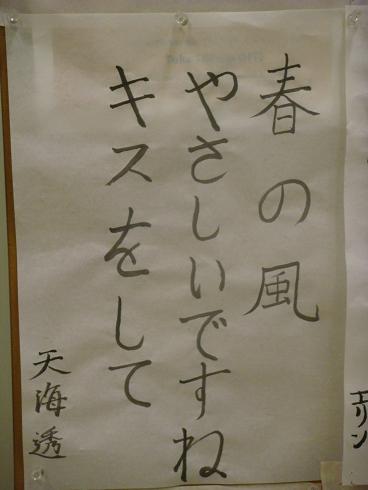 春の風
やさしいですね
キスをして
天海透
エリン